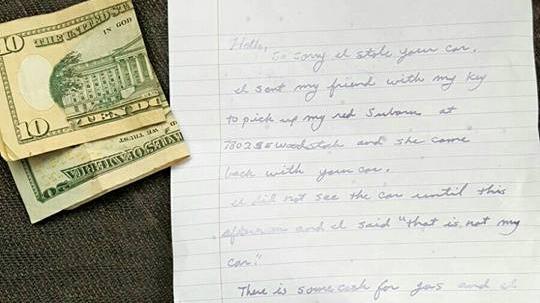 10 THE UNITED ST
IN GOD
10 TEN DO
WE TRUST
ES OF AMERICA
Hello,
So sorry I stole your car.
I sent my friend with my key
to pick up my red Subaru at
7802 SE Woodstock and she came
back with your car.
I did not see the car until this
afternoon and I said "that is not my
car."
There is some cash for gas and I